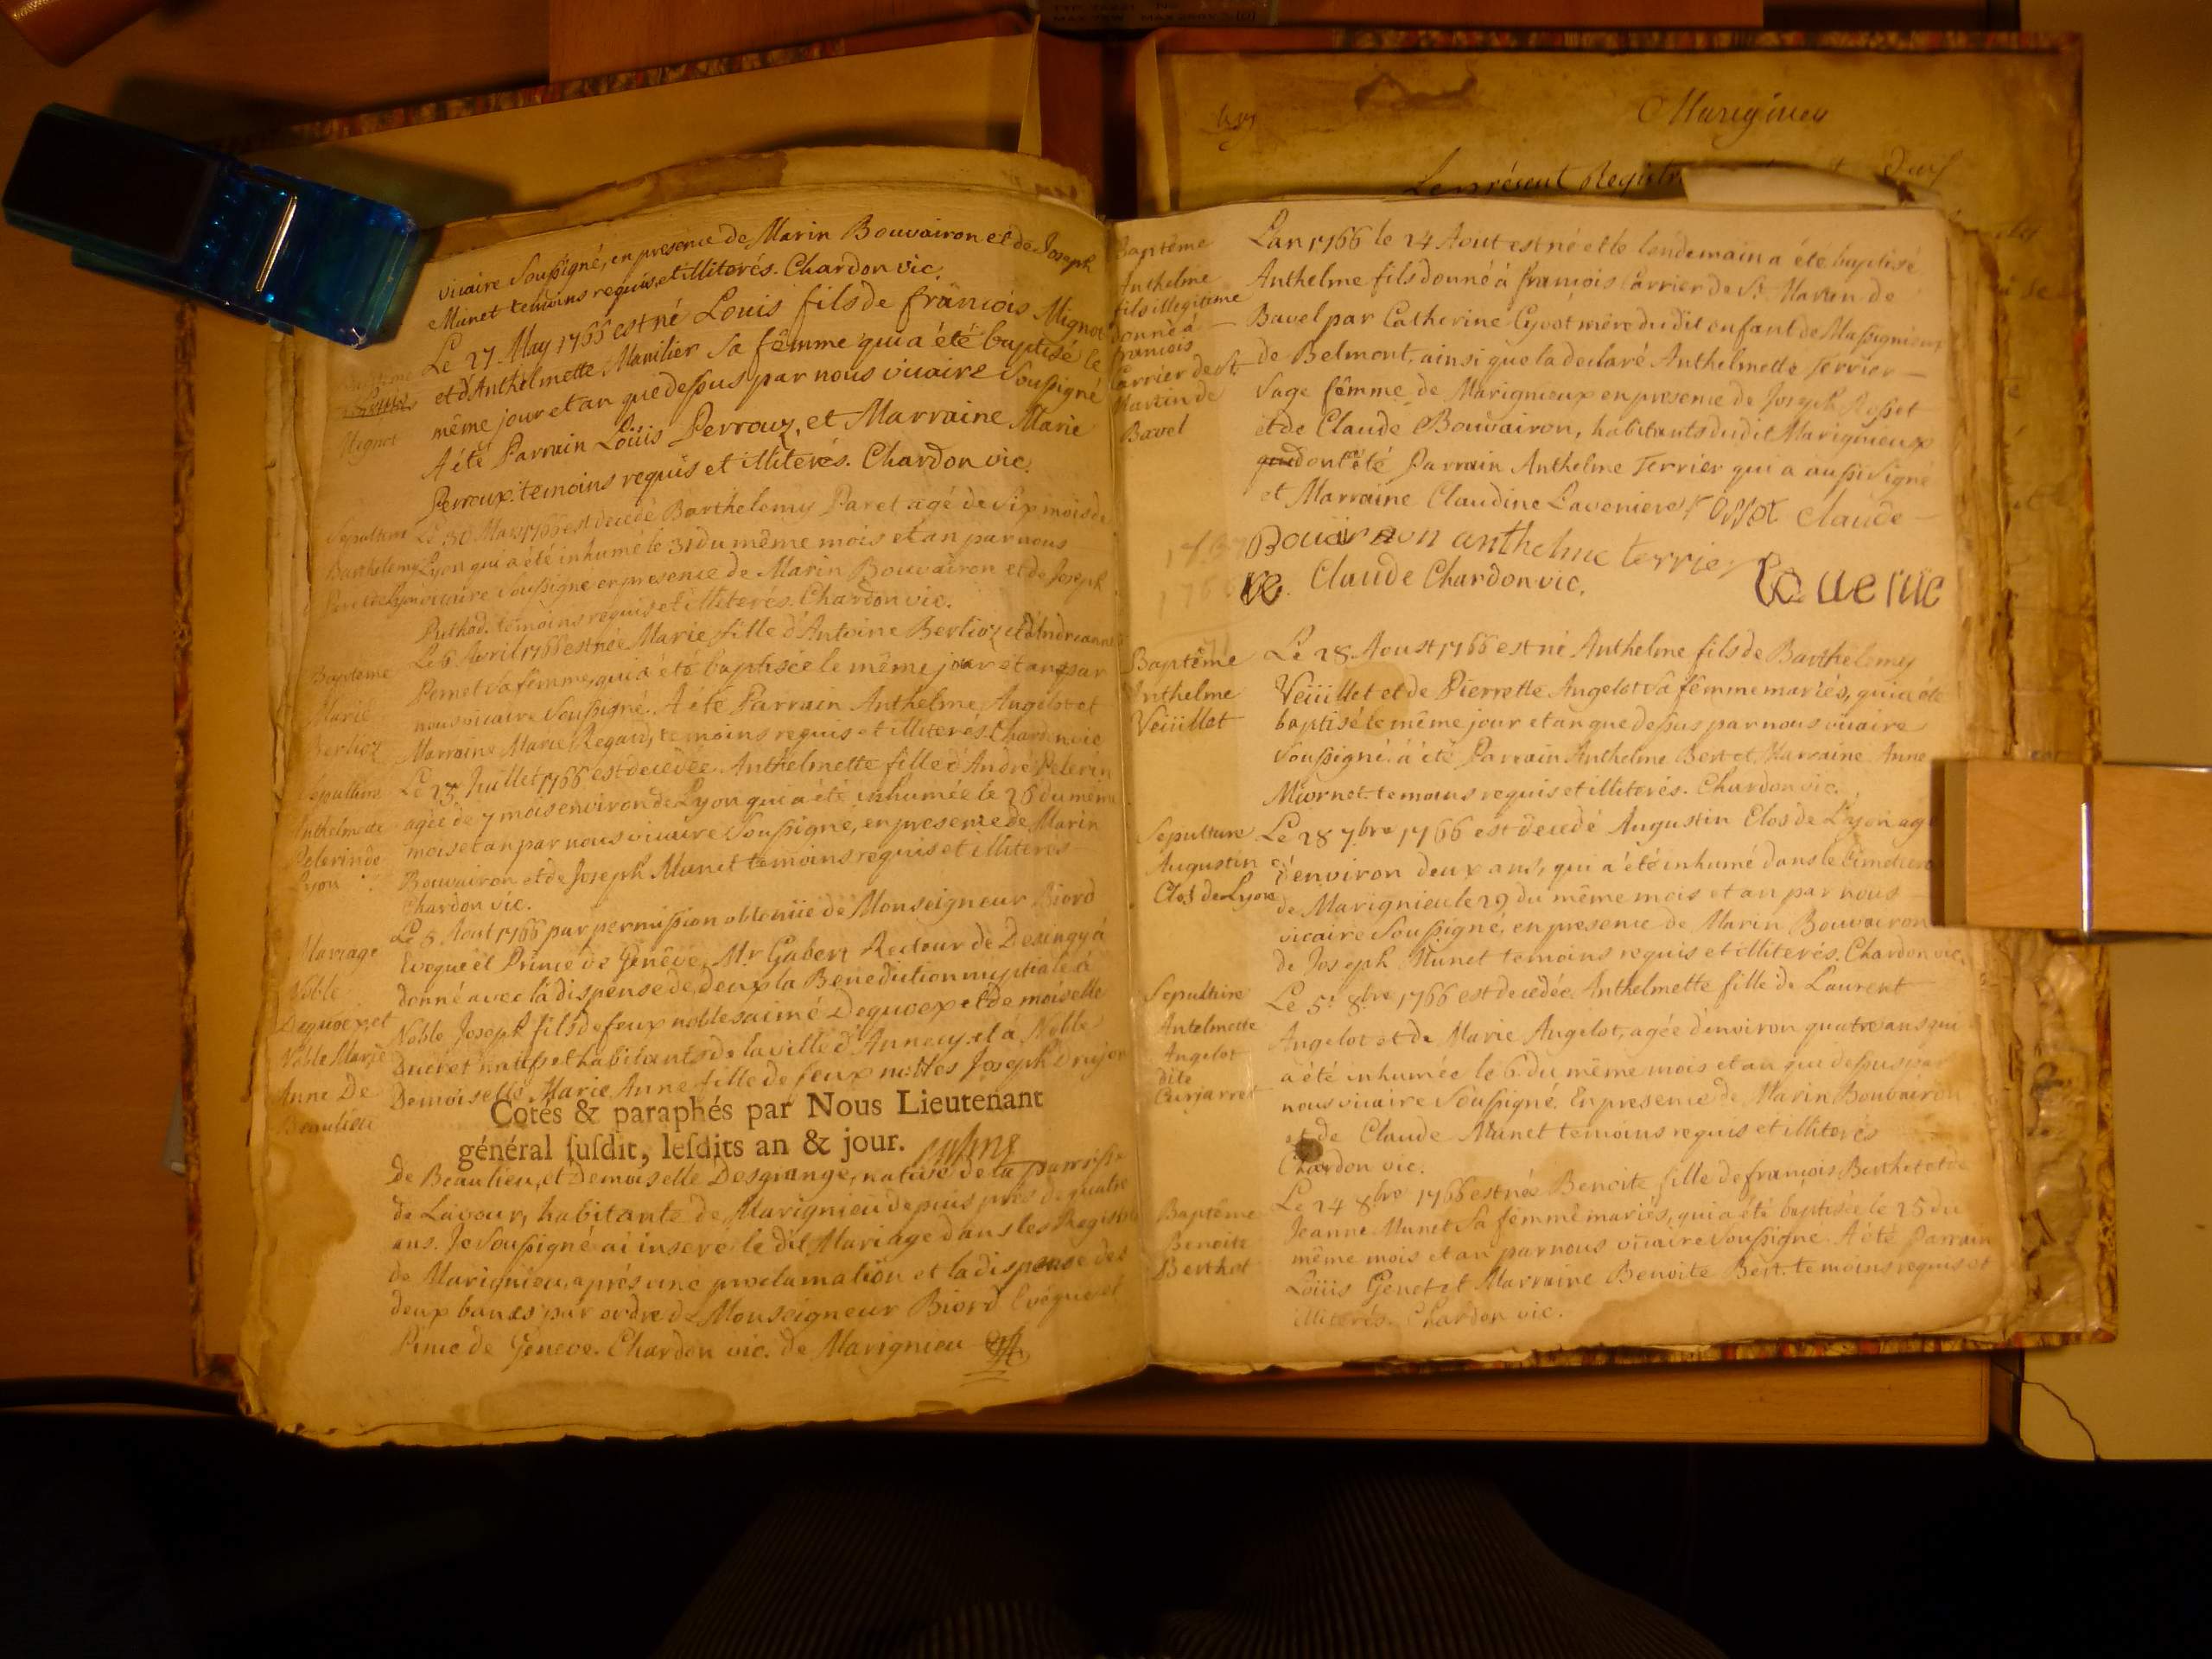 vicaire Soussigné, en presence de Marin Bouvairon et de Joseph
Munet temoins requis et illiterés. Chardon vic.
Baptême
Louis
Mignot
Le 27 May 1766 est né Louis fils de françois Mignot
et d'Anthelmette Manilier Sa fême qui a été baptisé le
même jour et an que dessus par nous vicaire Soussigné
A été Parrain Loüis Perroux, et Marraine Marie
Perroux. temoins requis et illiterés. Chardon vic.
Sepulture
Barthelemy
Paret de Lyon
Le 30 Mars 1766 est decedé Barthelemy Paret agé de Six mois de
Lyon qui a été inhumé le 31 du même mois et an par nous
vicaire Soussigné en presence de Marin Bouvairon et de Joseph
Puthod. temoins requis et illiterés. Chardon vic.
Bapteme
Marie
Berlioz
Le 6 Avril 1766 est née Marie fille d'Antoine Berlioz et d'Andreanne
Pernet Sa fême, qui a été baptisée le même jour et an par
nous vicaire Soussigné. A été Parrain Anthelme Angelot et
Marraine Marie Regaud, temoins requis et illiterés. Chardon vic.
Sepulture
Anthelmette
Pelerin de
Lyon
Le 25 Juillet 1766 est decedée Anthelmette fille d'André Pelerin
agée de 7 mois environ de Lyon qui a été inhumée le 26 du même
mois et an par nous vicaire Soussigné, en presence de Marin
Bouvairon et de Joseph Munet temoins requis et illiterés
Chardon vic.
Mariage
Noble
Dequoex et
Noble Marie
Anne De
Beaulieu
Le 5 Aout 1766 par permission obtenüe de Monseigneur Biord
Eveque et Prince de Genêve, Mr. Gabert Recteur de Desingy á
donné avec la dispense de deux la Benediction nuptiale à
Noble Joseph fils de feux nobles aimé Dequoex et demoiselle
Ducret natifs et habitants de la ville d'Annecy et à Noble
Demoiselle Marie Anne fille de feux nobles Joseph Drujon
Cotés & paraphés par Nous Lieutenant
général suſdit, leſdits an & jour.
de Beaulieu, et Demoiselle Desgrange, native de la parroisse
de Lavour, habitante de Marignieu depuis près de quatre
ans. Je Soussigné ai inseré le dit Mariage dans les Registres
de Marignieu, aprés une proclamation et la dispense des
deux bancs par ordre de Monseigneur Biord Evêque et
Prince de Geneve. Chardon vic. de Marignieu
Marignieu
Le présent Registre
Baptême
Anthelme
fils illegitime
donné à
francois
Carrier de St.
Martin de
Bavel
L'an 1766 le 24 Aout est né et le lendemain a été baptisé
Anthelme fils donné à françois Carrier de St. Martin de
Bavel par Catherine Cyvot mère du dit enfant de Massignieux
de Belmont, ainsi que la declaré Anthelmette Terrier
Sage fême de Marignieux en presence de Joseph Rosset
et de Claude Bouvairon, habitants du dit Marignieux
dont été Parrain Anthelme Terrier qui a aussi signé
et Marraine Claudine Laveniere Rosset Claude
Bouvairon anthelme terrier
Claude Chardon vic.
Baptême
Anthelme
Veüillet
Le 28 Aoust 1766 est né Anthelme fils de Barthelemy
Veüillet et de Pierrette Angelot Sa fême mariés, qui a été
baptisé le même jour et an que dessus par nous vicaire
Soussigné. à été Parrain Anthelme Bert et Marraine Anne
Mornet. temoins requis et illiterés. Chardon vic.
Sepulture
Augustin
Clos de Lyon
Le 28 7bre 1766 est decedé Augustin Clos de Lyon agé
d'environ deux ans, qui a été inhumé dans le Cimetiere
de Marignieu le 29 du même mois et an par nous
vicaire Soussigné, en presence de Marin Bouvairon
de Joseph Munet temoins requis et illiterés. Chardon vic.
Sepulture
Antelmette
Angelot
dite
Curjarret
Le 5. 8bre 1766 est decedée Anthelmette fille de Laurent
Angelot et de Marie Angelot, agée d'environ quatre ans qui
a été inhumée le 6 du même mois et an que dessus par
nous vicaire Soussigné. En presence de Marin Bouvairon
et de Claude Munet temoins requis et illiterés
Chardon vic.
Baptême
Benoite
Berthet
Le 24 8bre 1766 est née Benoite fille de françois Berthet et de
Jeanne Munet Sa fême mariés, qui a été baptisée le 25 du
même mois et an par nous vicaire Soussigné. A été Parrain
Loüis Genet et Marraine Benoite Bert. temoins requis et
illiterés. Chardon vic.